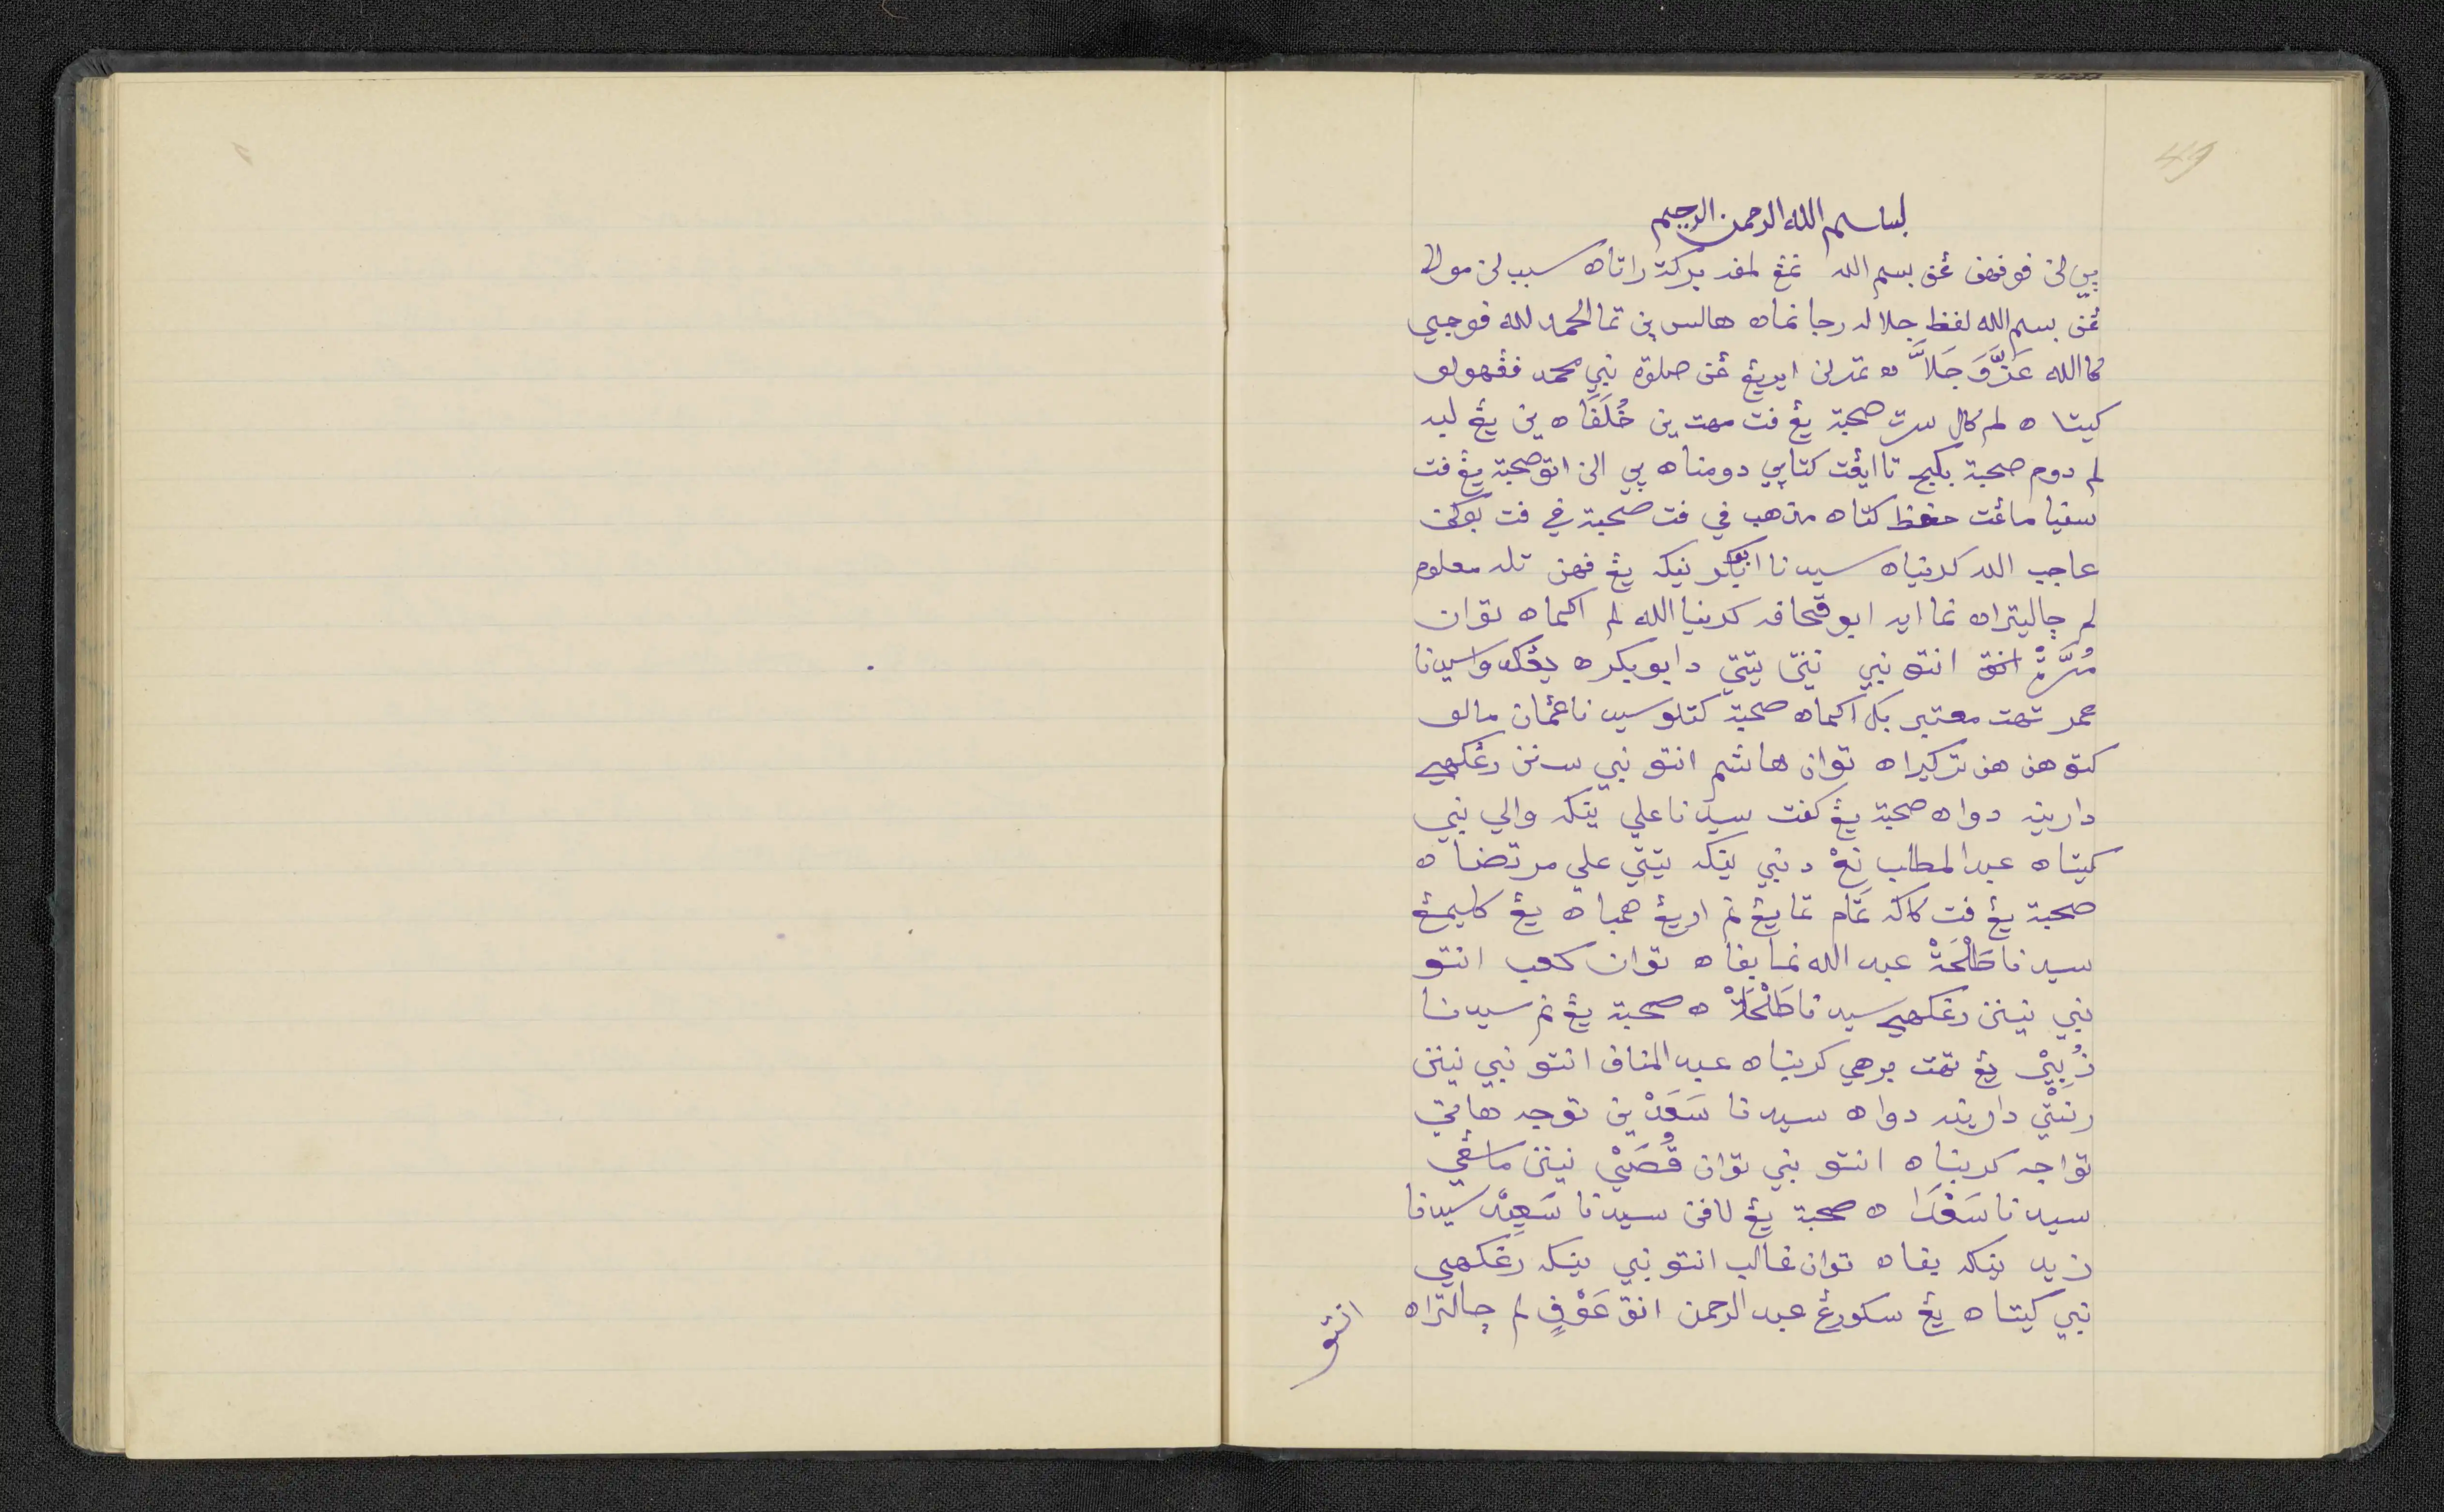 49
بساسم الله الرحمن الرحيم
بي لن فوفهن غن بسم الله نمڠ لفد بركة راتاه سبب لن مولا
غن بسم الله لفظ جلاله رجا نماه هالس ين تما الحمد لله فوجي
كا الله عَزَّوَجَلَّ ه تمرلن ايريڠ غن صلوة نبي محمد فڠهولو
كيتا ه لم كال سرت صحبة يڠ فت مهت ين خُلَفَاه ين يڠ لبه
لم دوم صحبة بكيج تا ايڠت كتابي دومناه بي الن اتو صحبة يڠ فت
سفيا ماڠت حفظ كتاه مذهب في فت صحبة في فت بوكن
عاجب الله كرنياه سيدنا ابوبكر نيكه يڠ فهن تله معلوم
لم چاليتراه نما ايه ابو قحافه كرنيا الله لم اكماه توان
مُرَّةْ انتو نبي نيتي دابوبكره يڠكدوا سيدنا
عمر تهت معتبر بكل اكماه صحبة كتلو سيدنا عثمان مالو
كتو هن هن تركيراه توان هاشم انتو نبي سنن رڠكهي
دارينه دواه صحبة يڠ كفت سيدنا علي ينكه والي نبي
كيتاه عبد المطلب نڠ دنبي ينكه تيتي علي مرتضاه
صحبة يڠ فت كاكه تمام تمايڠ نم اوريڠ همباه يڠ كليمڠ
سيدنا طَلْحَةْ عبد الله نما يفاه توان كعب انتو
نبي نينن رڠكهي سيدنا طَلْحَةْ ه صحبة يڠ نم سيدنا
زُبَيْر يڠ تهت برهي كرنياه عبد المناف انتو نبي نينن
رنتي دارينه دواه سيدنا سَعَدْ ين توجه هاتي
تواجه كرنياه انتو نبي توان قُصَيْ نينن ماڠي
سيدنا سَعْدَا ه صحبة يڠ لافن سيدنا سَعِيْد سيدنا
زيد ينكه يفاه توان غالب انتو نبي ينكه رڠكهي
نبي كيتاه يڠ سكورڠ عبد الرحمن انق عَوْفٍ لم چالتراه
انتو